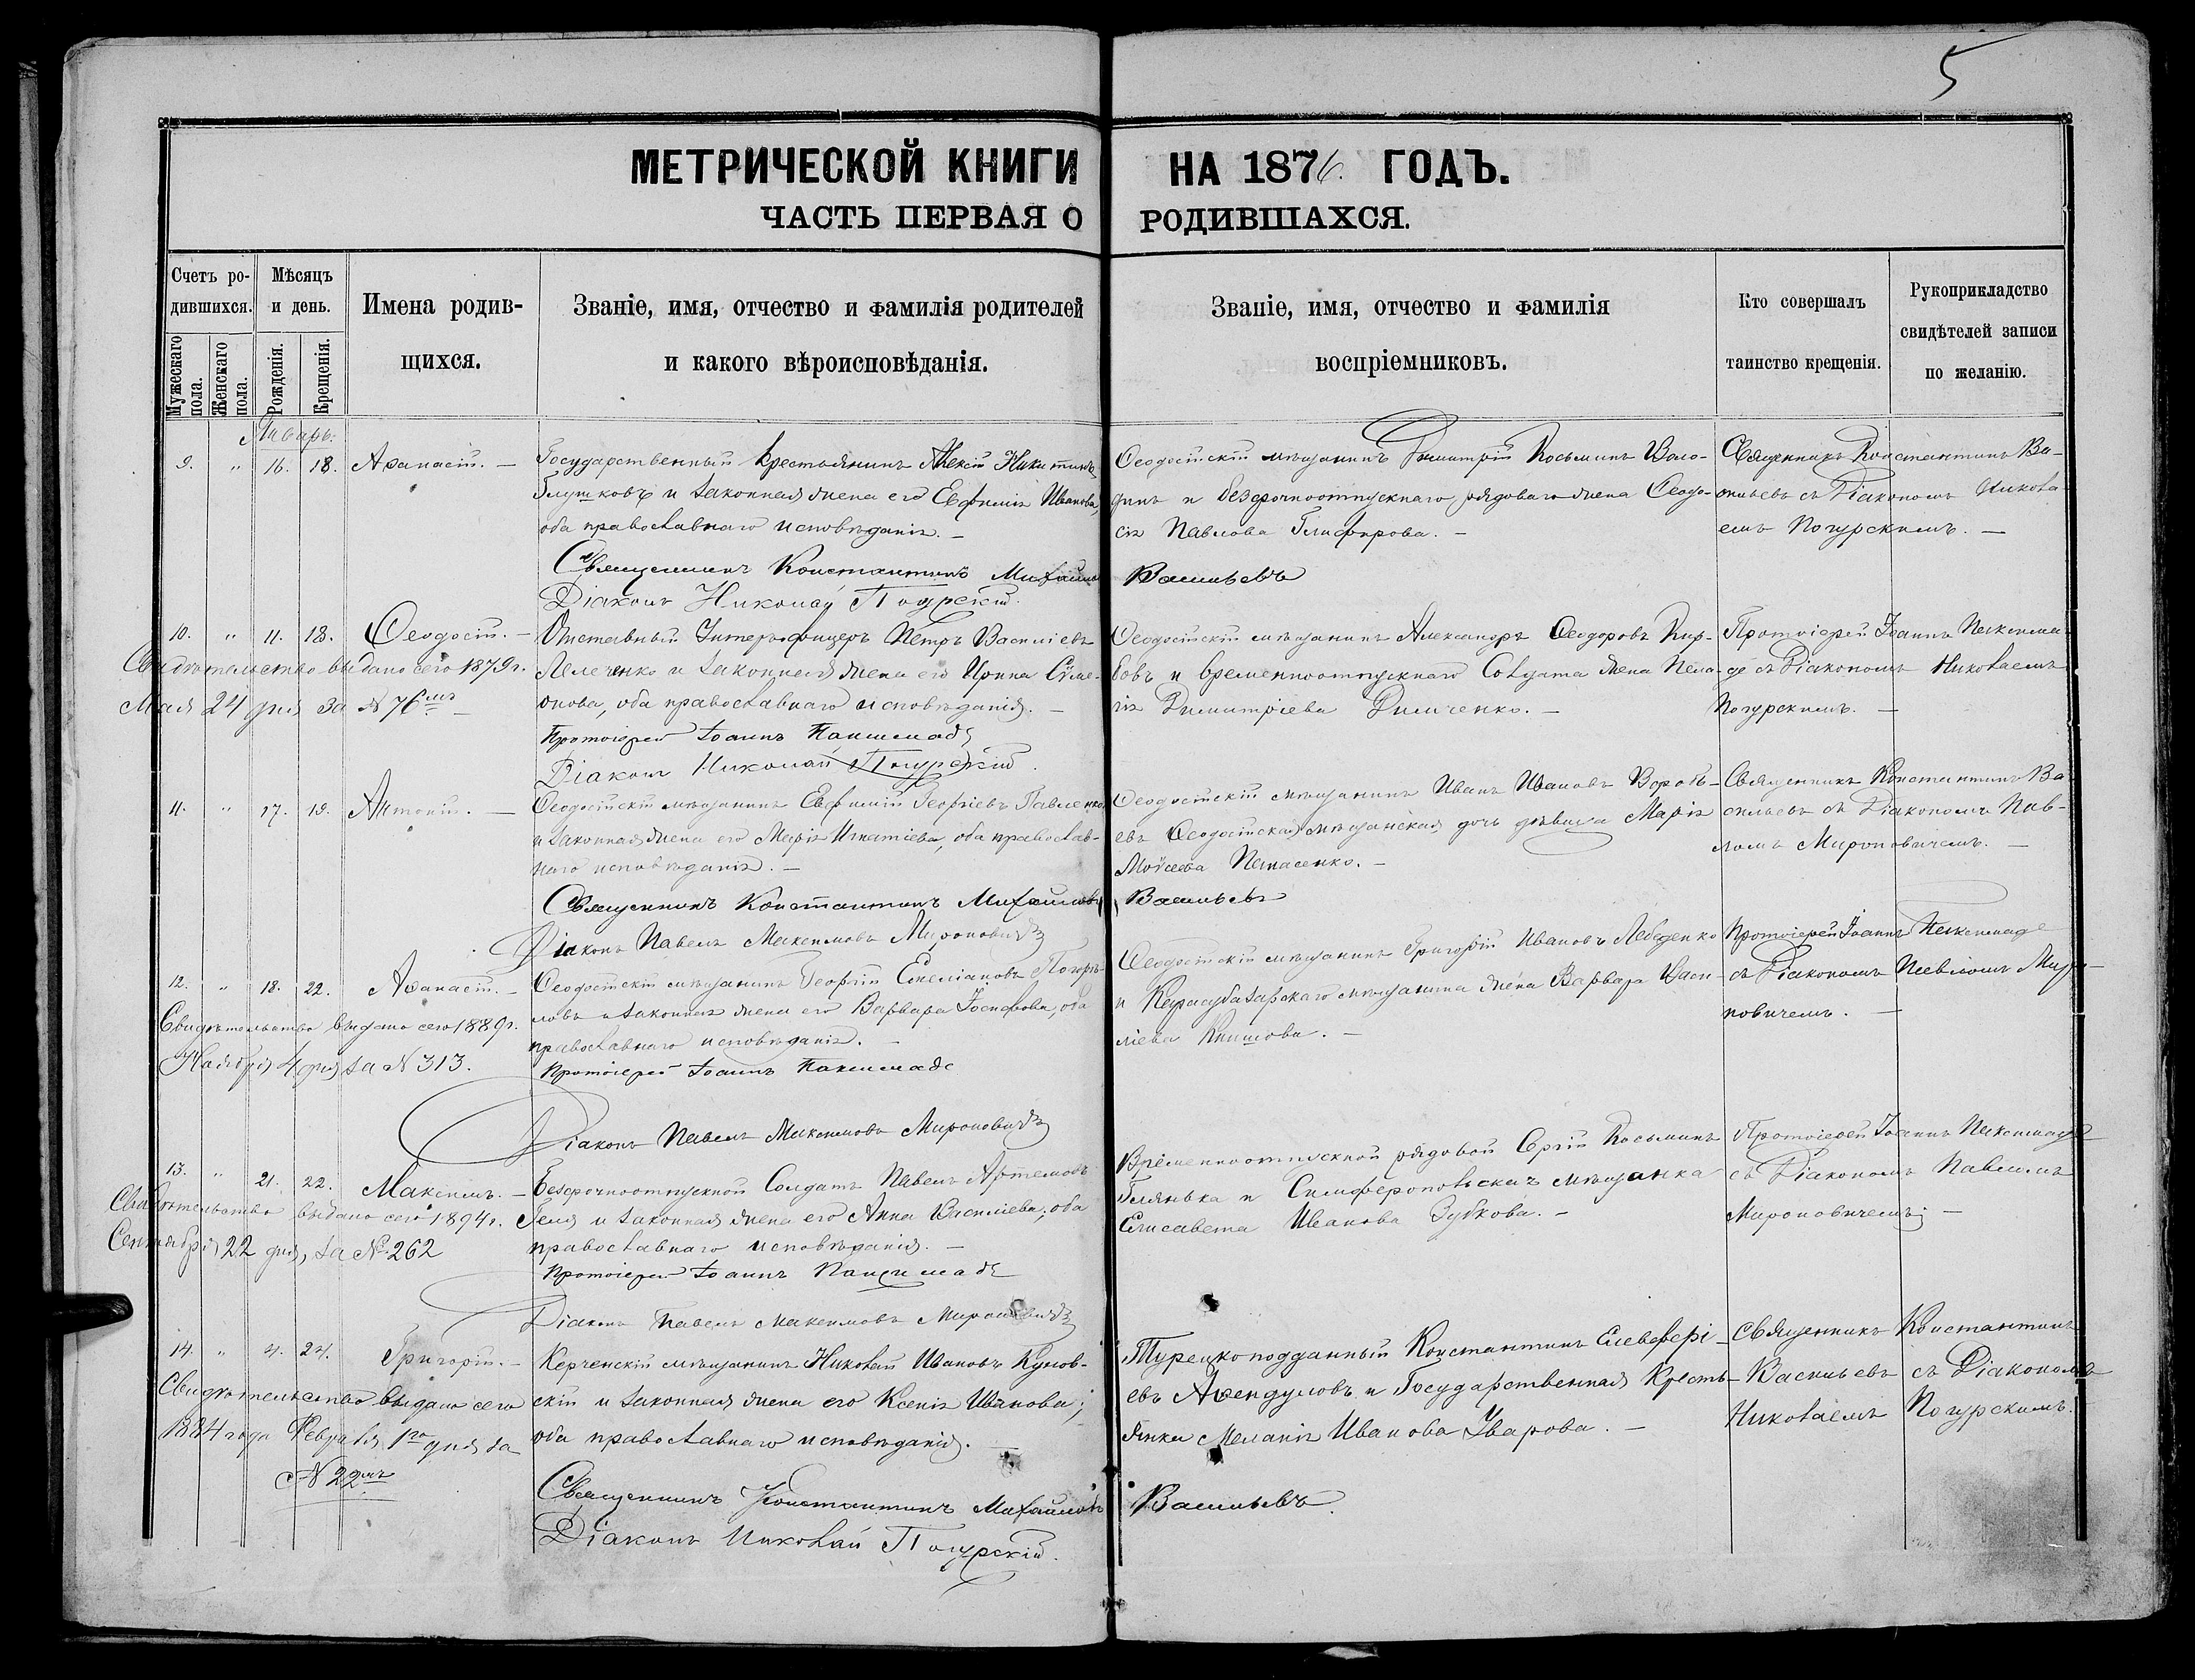 5
МЕТРИЧЕСКОЙ КНИГИ НА 1876. ГОДЪ.
ЧАСТЬ ПЕРВАЯ О РОДИВШАХСЯ.
Счетъ ро-
дившихся.
Мужескаго пола.
Женскаго пола.
Мѣсяцъ
и день.
Рожденія.
Крещенія.
Имена родив-
щихся.
Званіе, имя, отчество и фамилія родителей
и какого вѣроисповѣданія.
Званіе, имя, отчество и фамилія
воспріемниковъ.
Кто совершалъ
таинство крещенія.
Рукоприкладство
свидѣтелей записи
по желанію.
Январь.
9. " 16. 18. Аѳанасій. —
Государственный крестьянинъ Алексій Никитинъ
Глушковъ и законная жена его Евфимія Иванова,
оба православнаго исповѣданія. —
Священникъ Константинъ Михайловъ Васильевъ
Діаконъ Николай Погурскій.
Ѳеодосійскій мѣщанинъ Димитрій Косьминъ Воло-
динъ и безсрочноотпускнаго рядоваго жена Ѳеодо-
сія Павлова Глифирова. —
Священникъ Константинъ Ва-
сильевъ съ Діакономъ Никола-
емъ Погурскимъ. —
10. " 11. 18. Ѳеодосій. —
Свидѣтельство выдано сего 1879 г.
Мая 24 дня за № 76мъ
Отставный Унтеръ-офицеръ Петръ Василіевъ
Лелеченко и законная жена его Ирина Сѵме-
онова, оба православнаго исповѣданія. —
Протоіерей Іоаннъ Паксимаде
Діаконъ Николай Погурскій.
Ѳеодосійскій мѣщанинъ Александръ Ѳеодоровъ Кир-
бовъ и временноотпускнаго Солдата жена Пела-
гія Димитріева Димченко. —
Протоіерей Іоаннъ Паксима-
де съ Діакономъ Николаемъ
Погурскимъ. —
11. " 17. 19. Антоній. —
Ѳеодосійскій мѣщанинъ Евфимій Георгіевъ Павленко
и законная жена его Марія Игнатіева, оба православ-
наго исповѣданія. —
Священникъ Константинъ Михайловъ Васильевъ
Діаконъ Павелъ Максимовъ Мироновичъ
Ѳеодосійскій мѣщанинъ Иванъ Ивановъ Воробь-
евъ Ѳеодосійская мѣщанская дочь дѣвица Марія
Моѵсеева Панасенко. —
Священникъ Константинъ Ва-
сильевъ съ Діакономъ Пав-
ломъ Мироновичемъ. —
12. " 18. 22. Аѳанасій. —
Свидѣтельство выдано сего 1889 г.
Ноября 4 дня за № 313.
Ѳеодосійскій мѣщанинъ Георгій Емеліановъ Погорѣ-
ловъ и законная жена его Варвара Іосифова, оба
православнаго исповѣданія. —
Протоіерей Іоаннъ Паксимаде
Діаконъ Павелъ Максимовъ Мироновичъ
Ѳеодосійскій мѣщанинъ Григорій Ивановъ Лебеденко
и Карасубазарскаго мѣщанина жена Варвара Васи-
ліева Книшова. —
Протоіерей Іоаннъ Паксимаде
съ Діакономъ Павломъ Миро-
новичемъ. —
13. " 21. 22. Максимъ. —
Свидѣтельство выдано сего 1894 г.
Сентября 22 дня, за № 262
Безсрочноотпускной Солдатъ Павелъ Артемовъ
Геля и законная жена его Анна Василіева, оба
православнаго исповѣданія. —
Протоіерей Іоаннъ Паксимаде
Діаконъ Павелъ Максимовъ Мироновичъ
Временноотпускной рядовой Сергій Косьминъ
Гелянька и Симферопольская мѣщанка
Елисавета Иванова Зубкова. —
Протоіерей Іоаннъ Паксимаде
съ Діакономъ Павломъ
Мироновичемъ. —
14. " 4. 24. Григорій. —
Свидѣтельство выдано сего
1884 года Февраля 1го дня за
№ 22мъ
Керченскій мѣщанинъ Николай Ивановъ Кунов-
скій и законная жена его Ксенія Иванова;
оба православнаго исповѣданія. —
Священникъ Константинъ Михайловъ Васильевъ.
Діаконъ Николай Погурскій.
Турецкоподданный Константинъ Елевферi-
евъ Аѳендуловъ и Государственная Кресть-
янка Меланія Иванова Уварова. —
Священникъ Константинъ
Васильевъ съ Діакономъ
Николаемъ Погурскимъ.